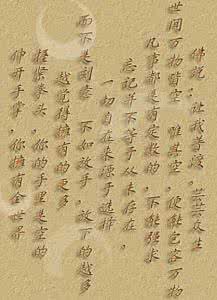 佛说：让我普渡，芸芸众生
世间万物皆空。唯其空，便能包容万物
凡事都是有定数的。不能强求
忘记并不等于从未存在。
一切自在来源于选择
而不是刻意。不如放手，放下的越多
越觉得拥有的更多
握紧拳头，你的手里是空的
伸开手掌，你拥有全世界